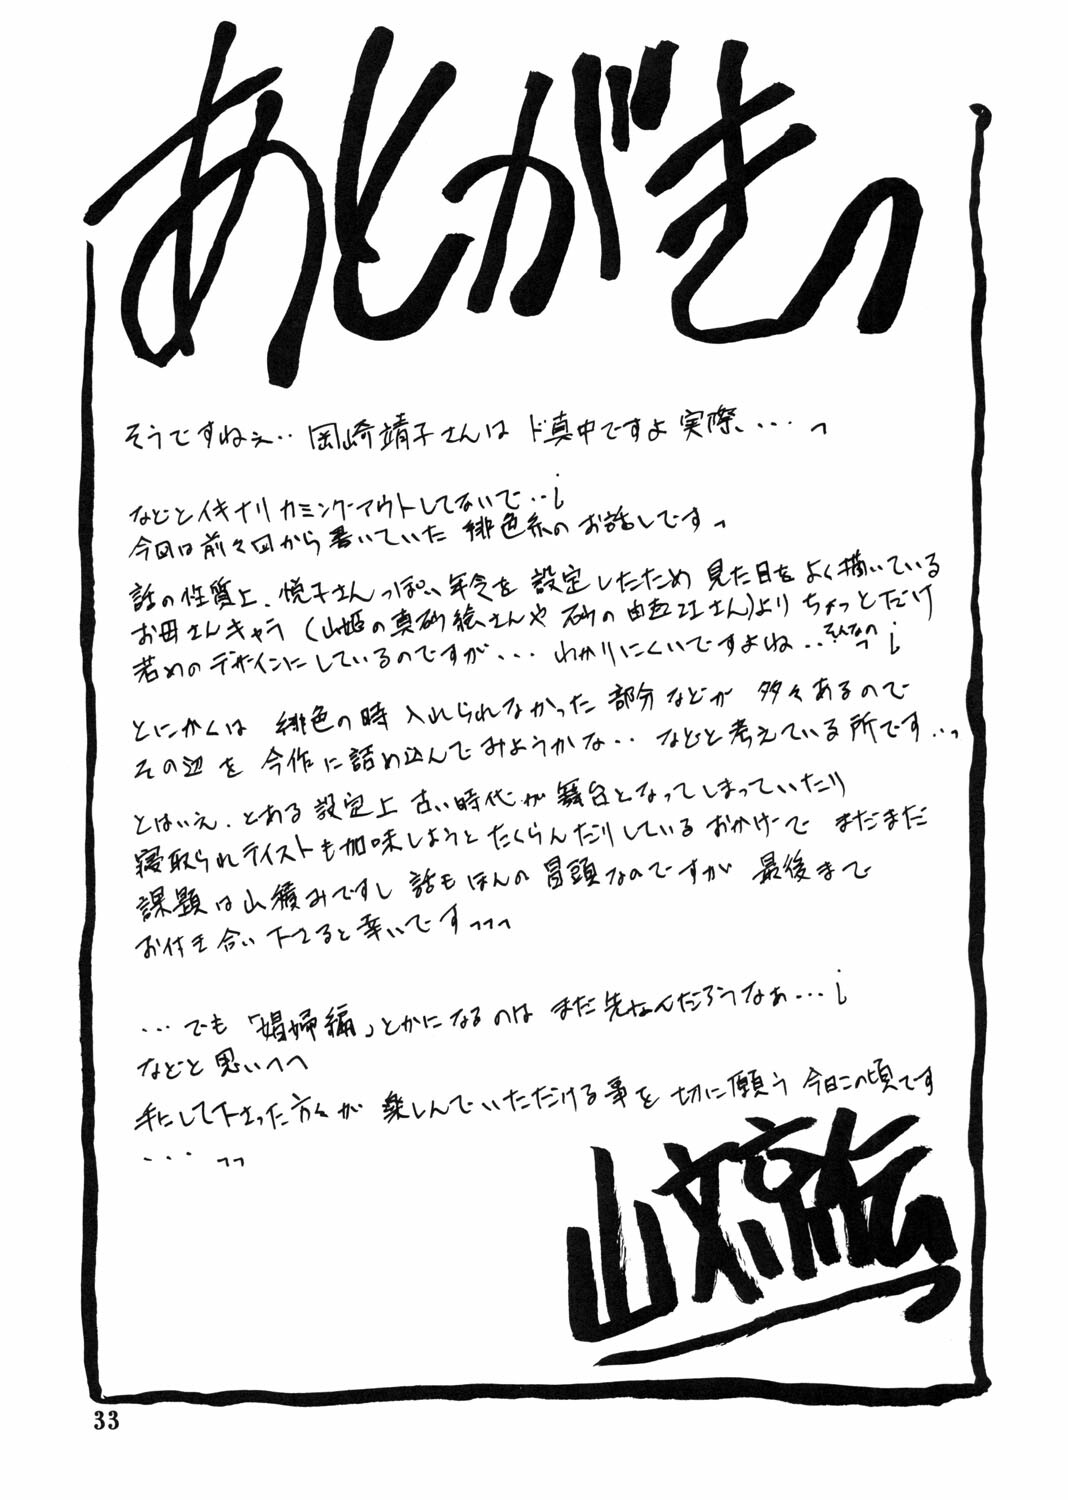 あとがきっ
そうですねぇ‥岡崎靖子さんは ド真中ですよ実際、‥‥っ
などとイキナリ カミングアウトしてないで‥¡
今回は前々回から書いていた 緋色系のお話しですっ
話の性質上、悦子さんっぽい年令を設定したため 見た目をよく描いている
お母さんキャラ(山姫の真砂絵さんや 砂の由 江さん)より ちょっとだけ
若めのデザインにしているのですが‥‥ わかりにくいですよね‥そんなのっ¡
とにかくは 緋色の時 入れられなかった 部分などが 多々あるので
その辺を 今作に詰め込んでみようかな‥ などと考えている所です‥っ
とはいえ、とある設定上 古い時代が舞台となってしまっていたり
寝取られテイストも加味しようとたくらんだりしているおかげで まだまだ
課題は山積みですし 話もほんの冒頭なのですが 最後まで
お付き合い下さると幸いですっっっ
‥‥でも「娼婦編」とかになるのは まだ先なんだろうなぁ‥‥¡
などと思いつつ
手にして下さった方々が 楽しんでいただける事を 切に願う 今日この頃です
‥‥っっ
山文京伝
33